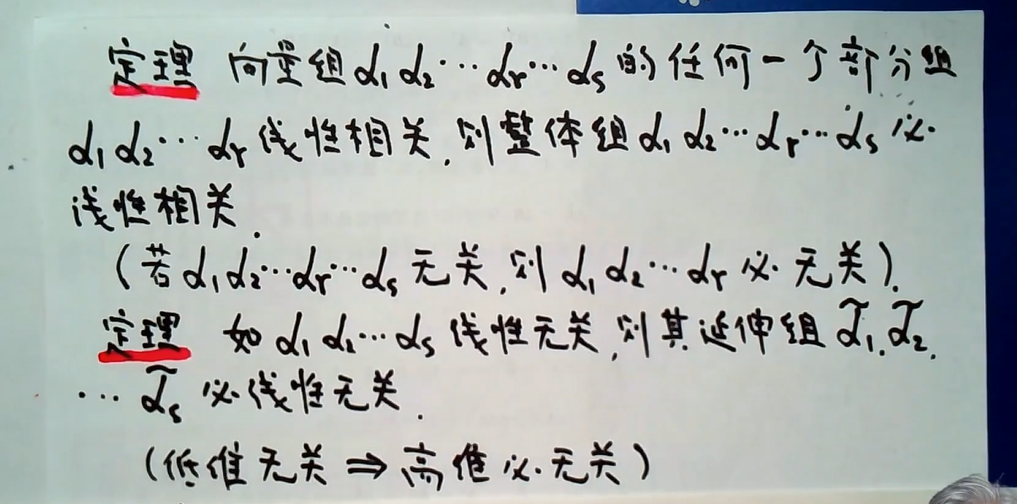 定理 向量组α₁α₂…αᵣ…αₛ的任何一个部分组
α₁α₂…αᵣ线性相关,则整体组α₁α₂…αᵣ…αₛ必
线性相关.
(若α₁α₂…αᵣ…αₛ无关,则α₁α₂…αᵣ必无关).
定理 如α₁α₂…αₛ线性无关,则其延伸组α̃₁,α̃₂,
…α̃ₛ必线性无关.
(低维无关⇒高维必无关)